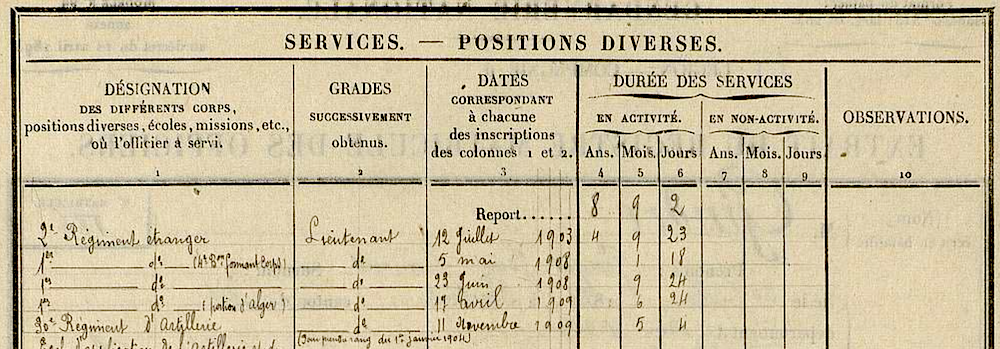 SERVICES. — POSITIONS DIVERSES.
DÉSIGNATION
DES DIFFÉRENTS CORPS,
positions diverses, écoles, missions, etc.,
où l'officier a servi.
GRADES
SUCCESSIVEMENT
obtenus.
DATES
CORRESPONDANT
à chacune
des inscriptions
des colonnes 1 et 2.
DURÉE DES SERVICES
EN ACTIVITÉ. EN NON-ACTIVITÉ.
Ans. Mois. Jours Ans. Mois. Jours
OBSERVATIONS.
1 2 3 4 5 6 7 8 9 10
Report...... 8 9 2
2e Régiment étranger Lieutenant 12 Juillet 1903 4 9 23
1er d° (4e Bon formant Corps) d° 5 mai 1908 1 18
1er d° d° 23 Juin 1908 9 24
1er d° (portion d'Alger) d° 17 avril 1909 6 24
20e Régiment d'Artillerie d° 11 Novembre 1909 5 4
(Pour prendre rang du 1er janvier 1904)
d'application de l'Artillerie et d